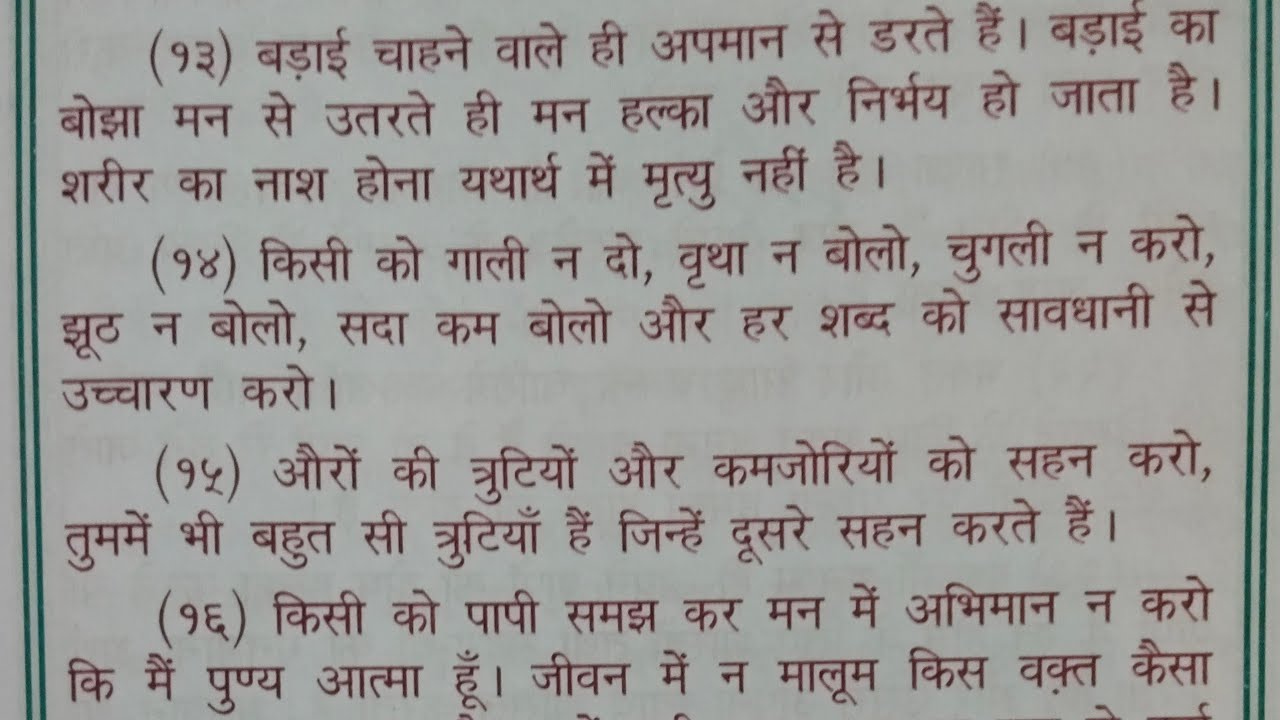 (१३) बड़ाई चाहने वाले ही अपमान से डरते हैं। बड़ाई का
बोझा मन से उतरते ही मन हल्का और निर्भय हो जाता है।
शरीर का नाश होना यथार्थ में मृत्यु नहीं है।
(१४) किसी को गाली न दो, वृथा न बोलो, चुगली न करो,
झूठ न बोलो, सदा कम बोलो और हर शब्द को सावधानी से
उच्चारण करो।
(१५) औरों की त्रुटियों और कमजोरियों को सहन करो,
तुममें भी बहुत सी त्रुटियाँ हैं जिन्हें दूसरे सहन करते हैं।
(१६) किसी को पापी समझ कर मन में अभिमान न करो
कि मैं पुण्य आत्मा हूँ। जीवन में न मालूम किस वक़्त कैसा